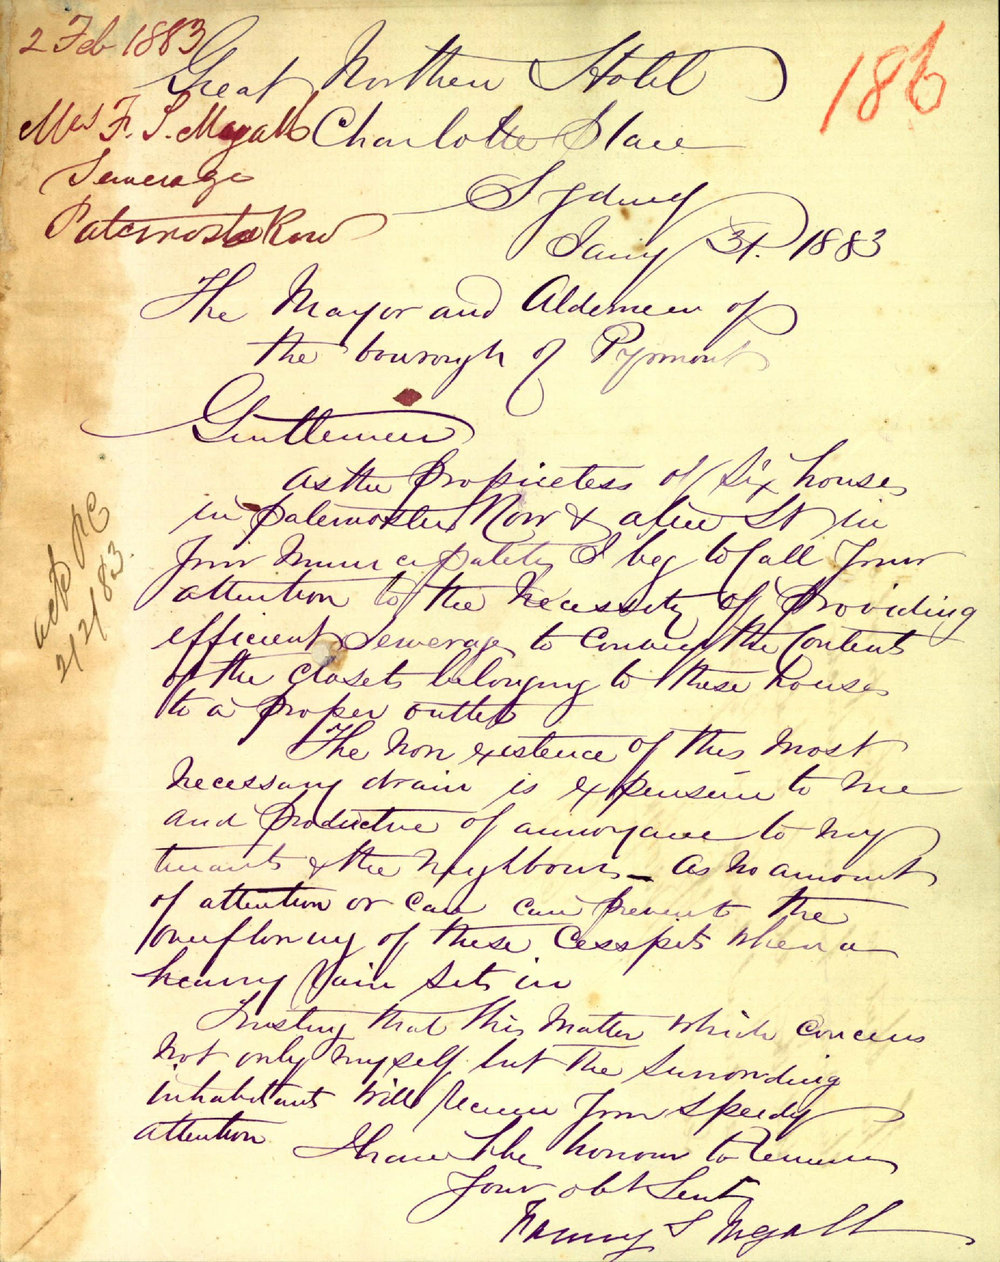 2 Feb 1883
Mrs F. S. Mcgall
Sewerage
Paternoster Row
186
Great Northern Hotel
Charlotte Place
Sydney
Jany 31. 1883
The Mayor and Aldermen of
the bourough of Pyrmont
Gentlemen
As the Propietess of Six houses
in Paternoster Row & alice St in
your Municipality I beg to Call your
attention to the necessity of Providing
efficient Sewerage to convey the Contents
of the closets belonging to these houses
to a proper outlet
The non existence of this most
necessary drain is expensive to me
and productive of annoyance to my
tenants & the neighbours - as no amount
of attention or care can prevent the
overflowing of these Cesspits when a
heavy rain sets in
Trusting that this matter which concerns
not only myself but the surrounding
inhabitants will receive your speedy
attention
I have the honour to remain
Your obt Servt
Fanny S Mcgall
2/2/83.